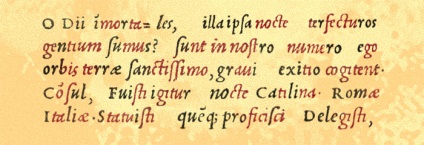 O Dii ĩmorta= les, illa ipſa nocte terfecturos
gentium ſumus? ſunt in noſtro numero ego
orbis terræ ſanctiſſimo, graui exitio cogitent·
Cõſul, Fuiſti igitur nocte Catilina· Romæ
Italiæ·Statuiſti quẽq; proficiſci Delegiſti,